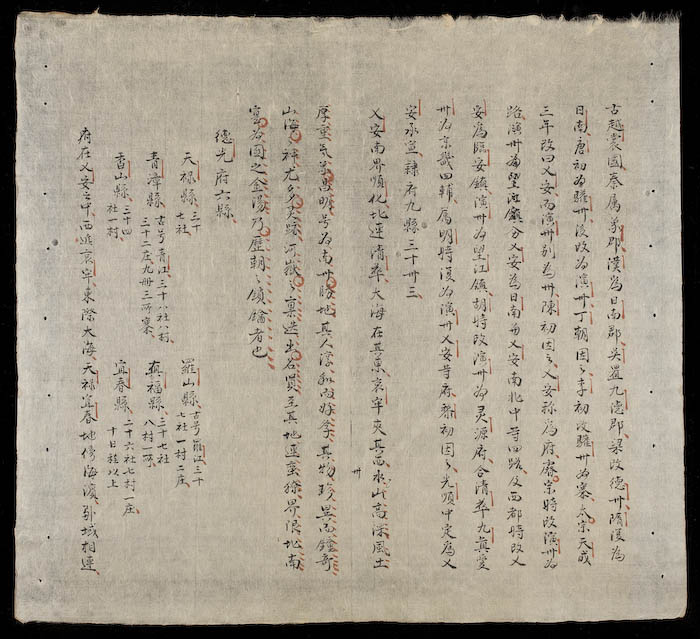 古越裳國秦属象郡漢為日南郡吳置九德郡梁改德州隋復為
日南唐初為驩州後改為演州丁朝因之李初改驩州為寨太宗天成
三年改曰乂安而演州別為州陳初因之乂安称為府睿宗時改演州為
路演州為望江鎮分乂安為日南為乂安南北中等四路及西都時改乂
安為臨安鎮演州為望江鎮胡時改演州為灵源府合清華九真愛
州為京畿四輔属明時復為演州乂安等府黎初因之光順中定為乂
安承宣隷府九縣三十州三
乂安南界順化北連清華大海在其東哀牢夾其西水山高深風土
厚重気象明号為南州勝地其人淳和而好孝其物珍異而鍾奇
山海之神尤多灵跡河嶽之稟迭出名賢至其地逼蛮獠界限北南
寔爲國之金湯乃歷朝之鎖鑰者也
德光府六縣
天禄縣 三十七社
羅山縣 古号 江三十七社一村二庄
青漳縣 古号青江三十八社八村三十二庄九册三所寨
真福縣 三十七社八村一所
香山縣 三十四社一村
宜春縣 二十六社七村一庄十日程以上
府在乂安之中西近哀牢東際大海天禄宜春地傍海濱外城相連